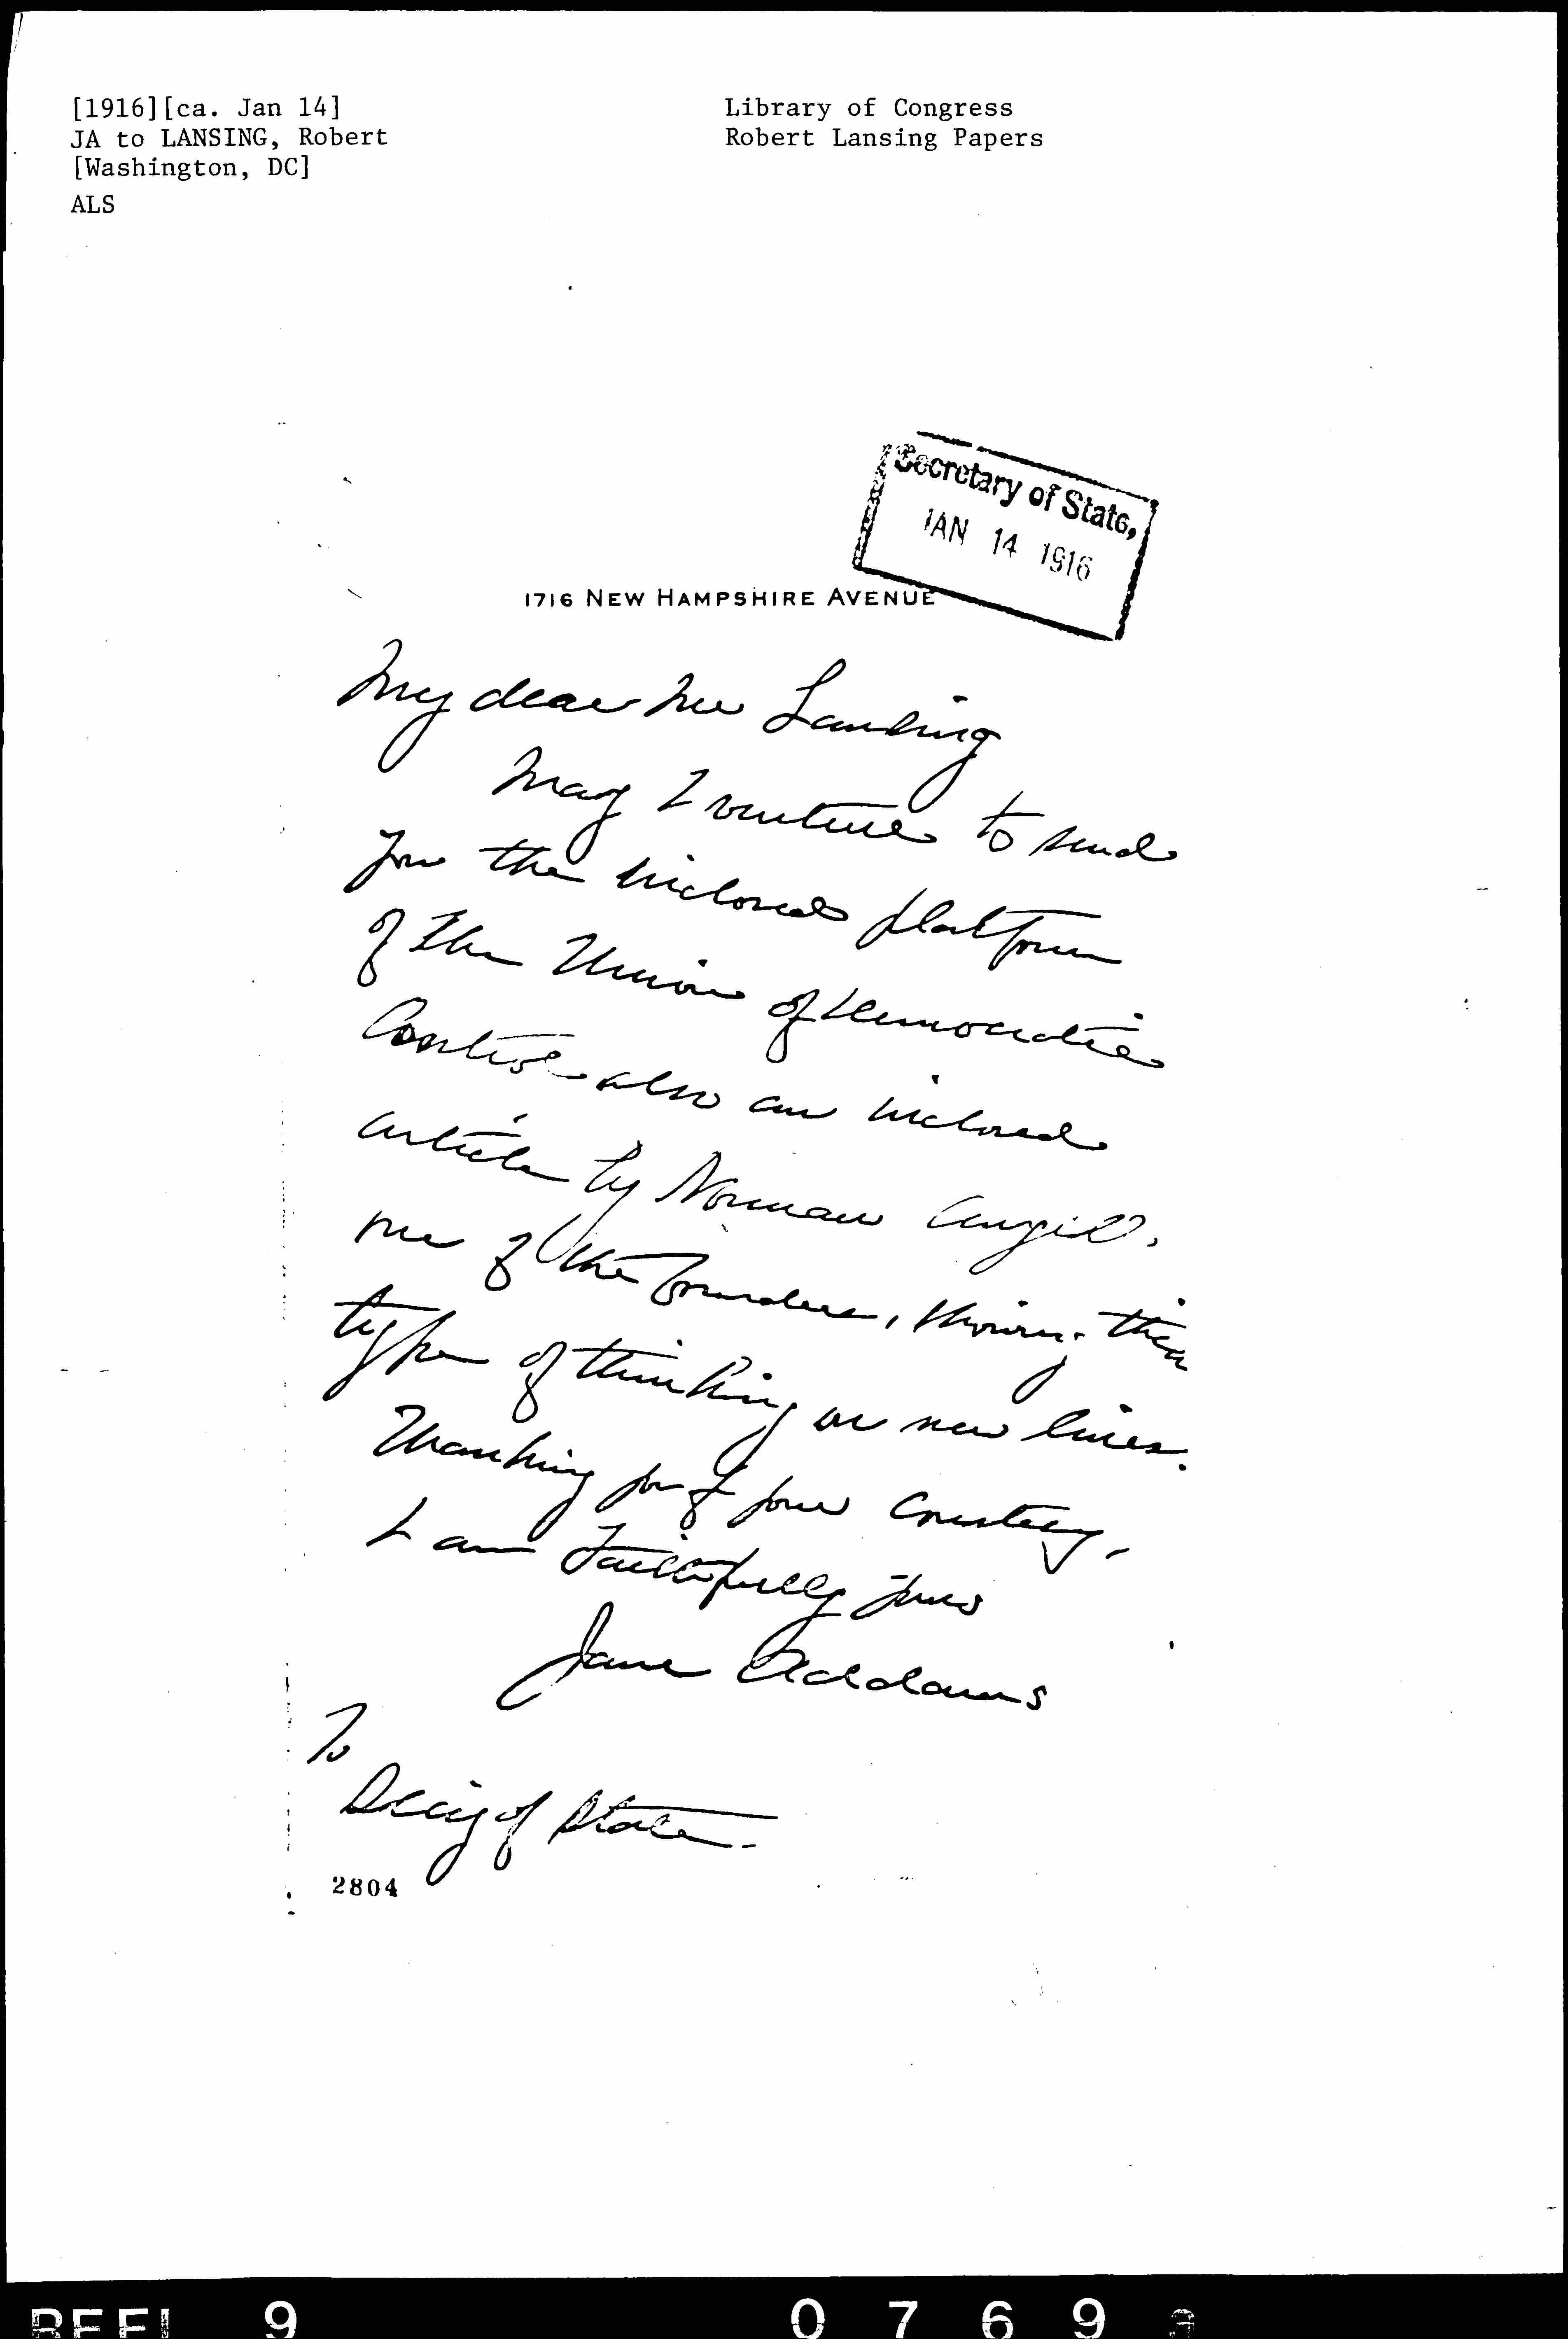 [1916][ca. Jan 14]
JA to LANSING, Robert
[Washington, DC]
ALS
Library of Congress
Robert Lansing Papers
Secretary of State,
JAN 14 1916
1716 NEW HAMPSHIRE AVENUE
My dear Mr Lansing
May I venture to send
you the inclosed platform
of the Union of Democratic
Control also an inclosed
article by Norman Angell,
one of the founders, showing their
type of thinking on new lines.
Thanking you for your courtesy,
I am Faithfully yours
Jane Addams
To
Secy of State.
2804
REEL 9
0 7 6 9